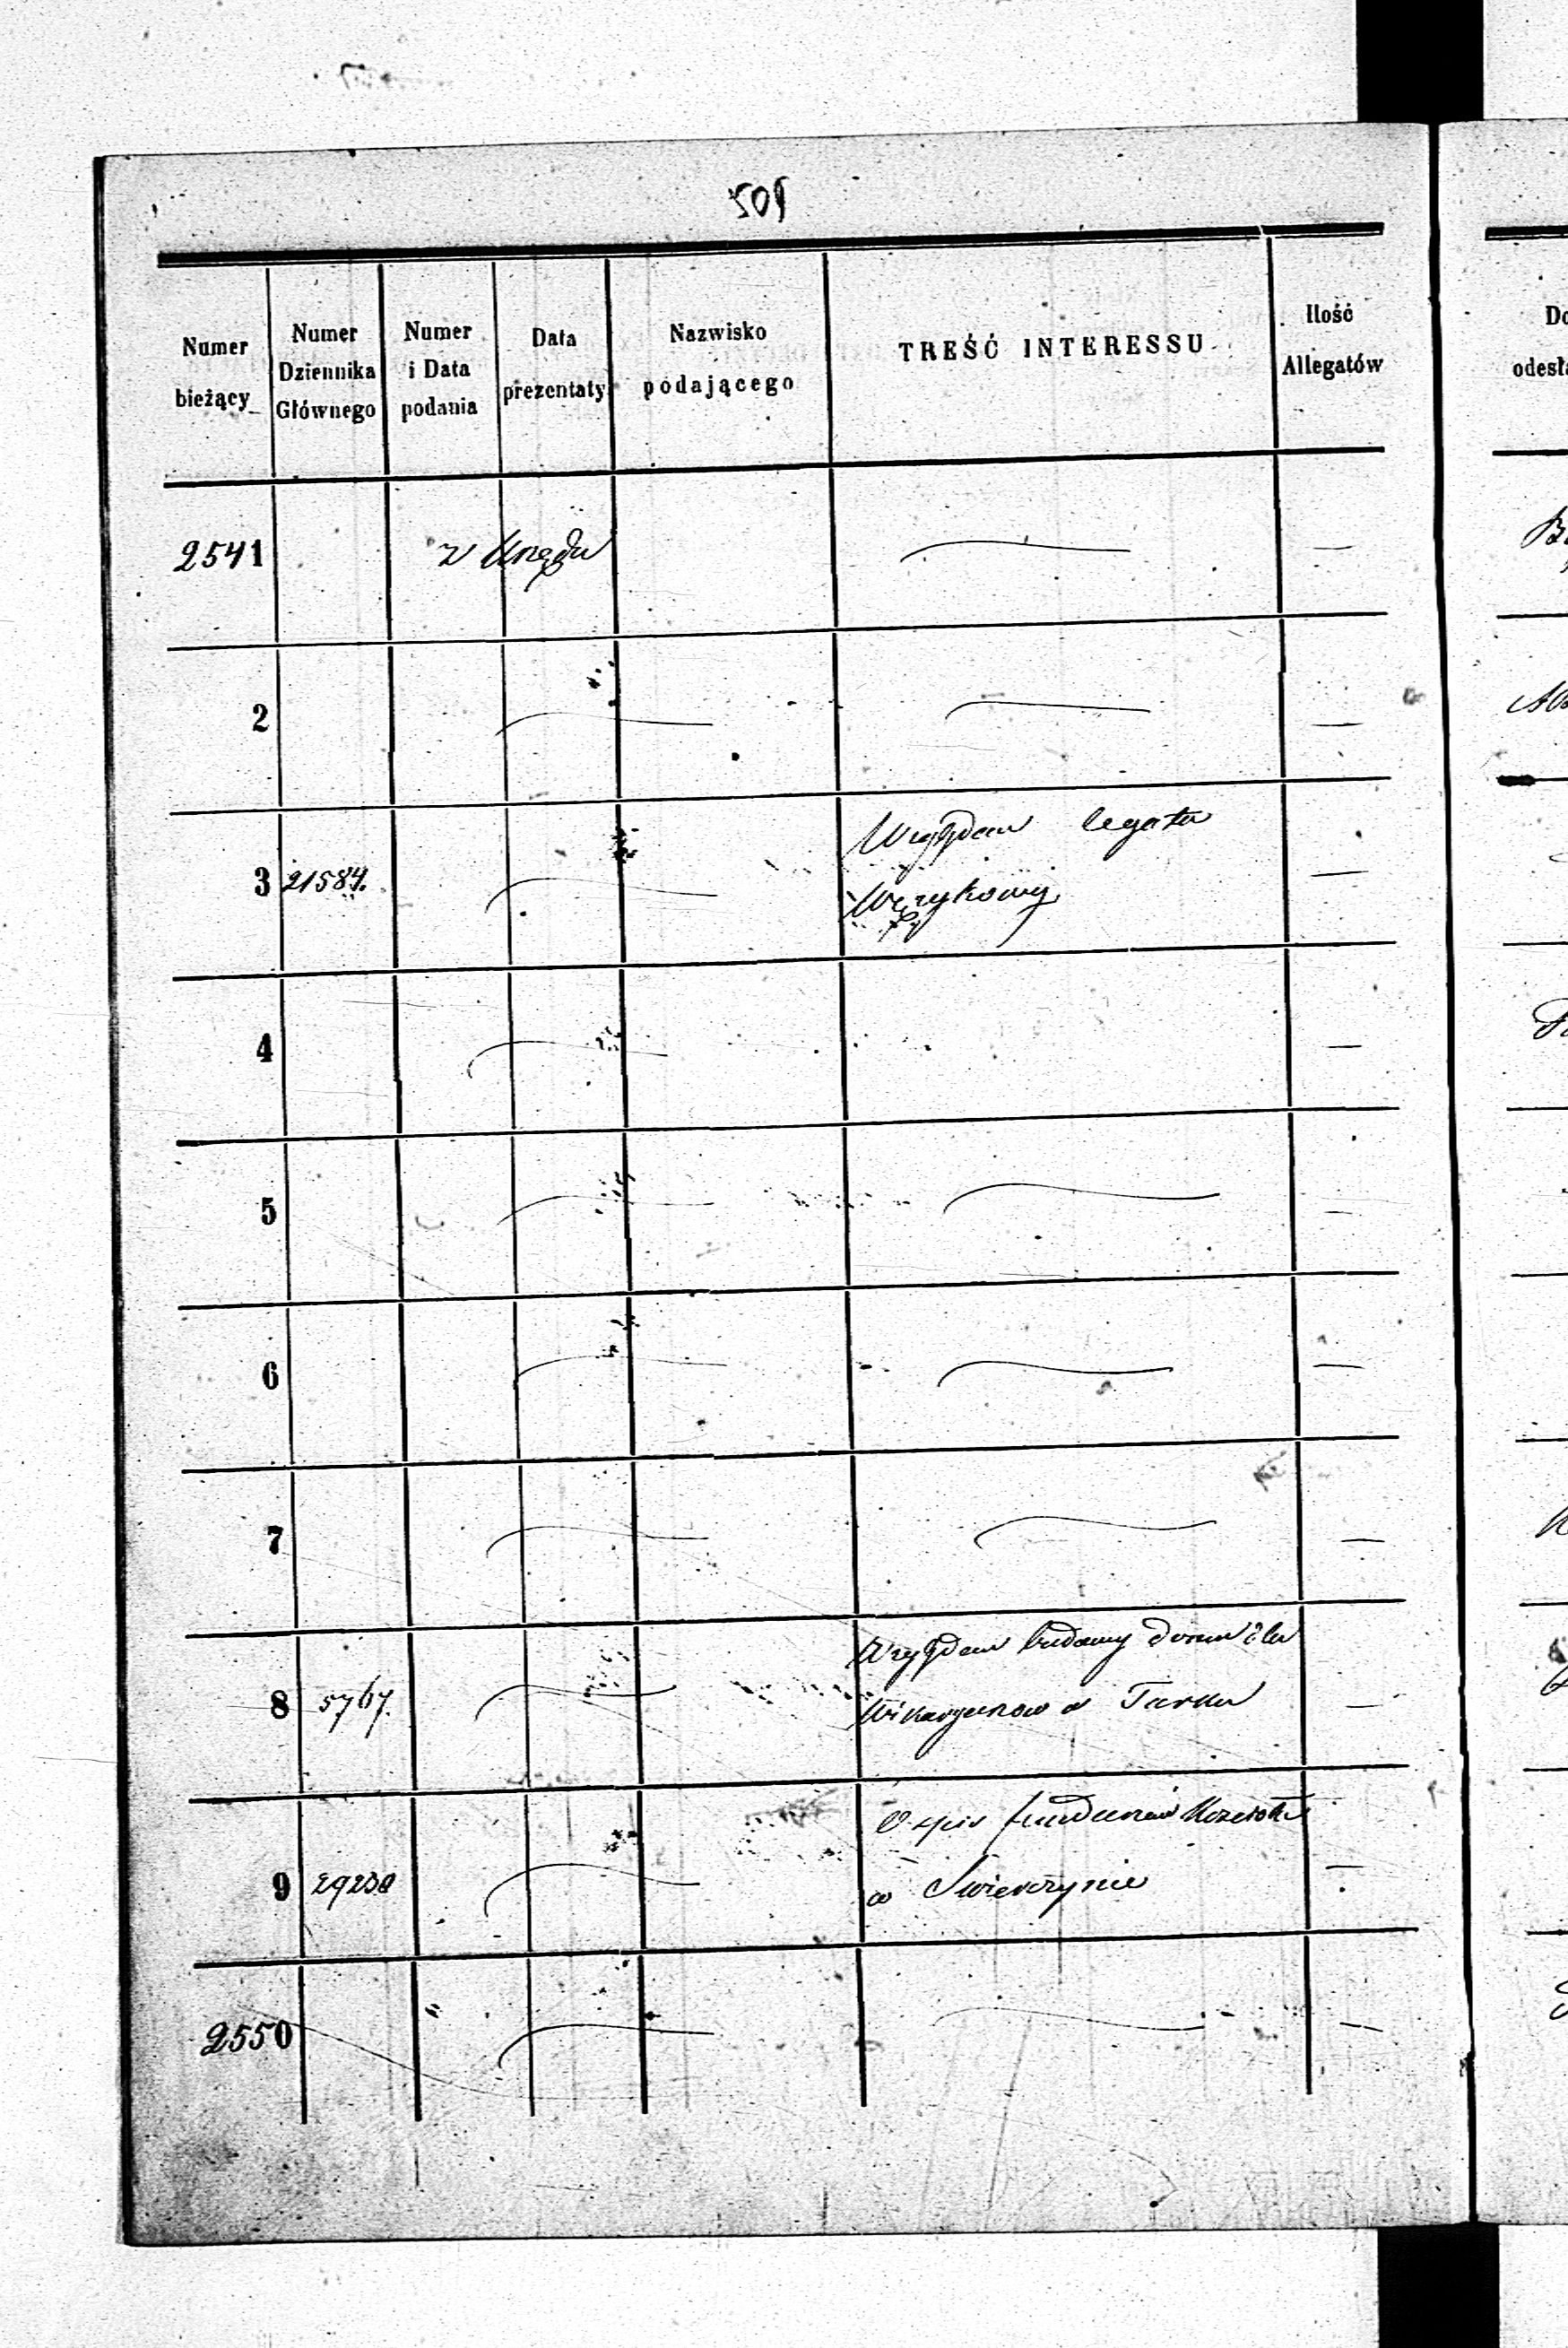 509
Numer bieżący
Numer Dziennika Głównego
Numer i Data podania
Data prezentaty
Nazwisko podającego
TREŚĆ INTERESSU
Ilość Allegatów
2541 z Urzędu — —
2 — — —
3 21584. — Względem legatu
Wężykowy —
4 — —
5 — — —
6 — — —
7 — — —
8 5767. — Względem budowy domu dla
Wikaryuszow w Turku —
9 29238 — O spis funduszów Kościoła
w Swierczynie —
2550 — — —